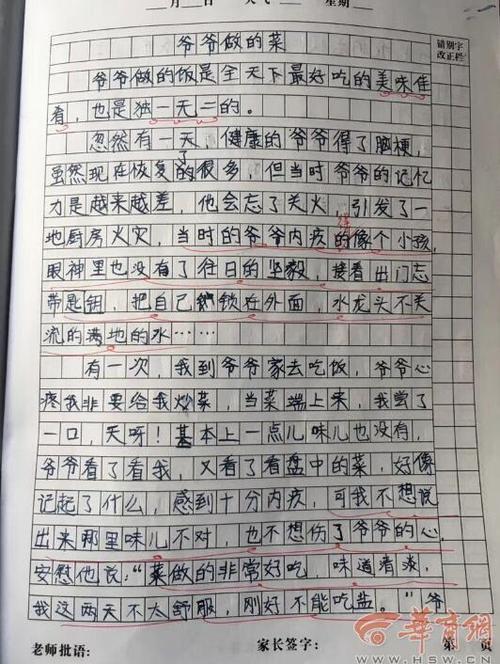 月 日 天气 星期
请别字
改正栏
爷爷做的菜
爷爷做的饭是全天下最好吃的美味佳
肴，也是独一无二的。
忽然有一天，健康的爷爷得了脑梗，
虽然现在恢复了的很多，但当时爷爷的记忆
力是越来越差，他会忘了关火，引发了一
地厨房火灾，当时的爷爷内疚的像个小孩，
眼神里也没有了往日的坚毅，接着出门忘
带匙钥，把自己锁在外面，水龙头不关
流的满地的水……
有一次，我到爷爷家去吃饭，爷爷心
疼我非要给我炒菜，当菜端上来，我尝了
一口，天呀！基本上一点儿味儿也没有，
爷爷看了看我，又看了看盘中的菜，好像
记起了什么，感到十分内疚，可我不想说
出来哪里味儿不对，也不想伤了爷爷的心，
安慰他说：“菜做的非常好吃，味道清淡，
我这两天不太舒服，刚好不能吃盐。”爷
老师批语： 家长签字： 第 页
华商网
WWW.HSW.CN